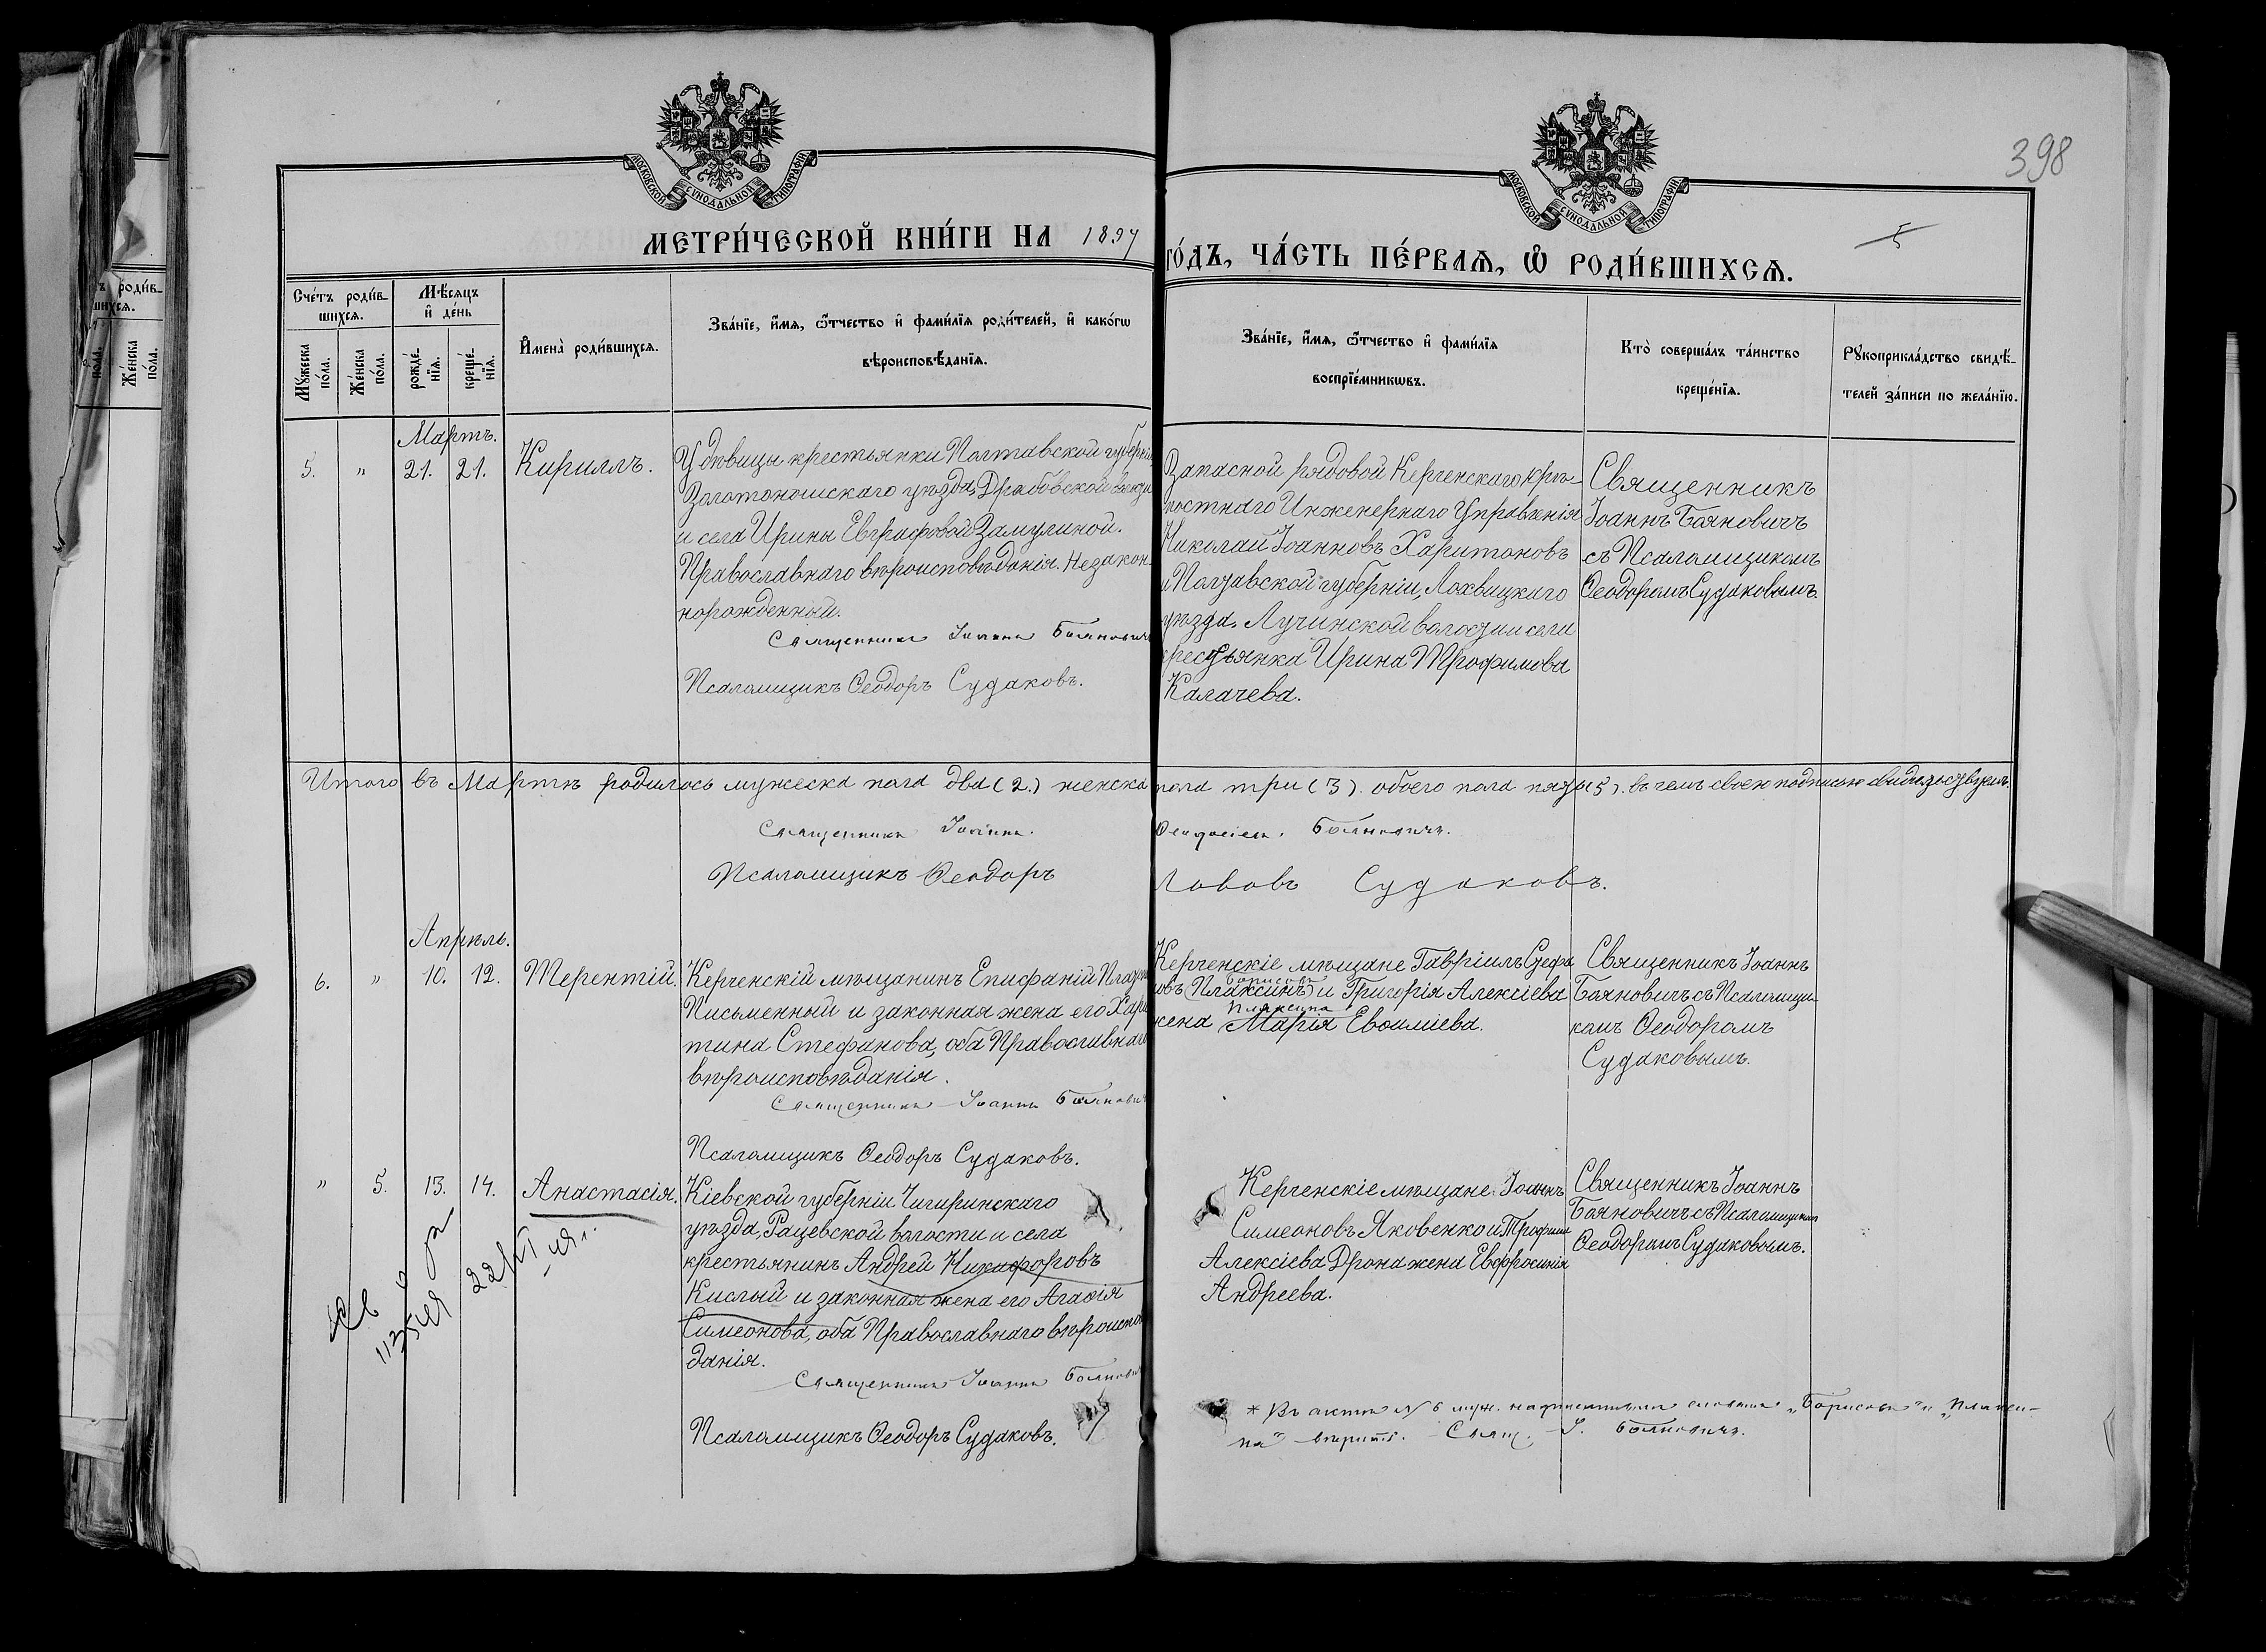 398
МОСКОВСКОЙ СѴНОДАЛЬНОЙ ТИПОГРАФІИ
МОСКОВСКОЙ СѴНОДАЛЬНОЙ ТИПОГРАФІИ
МЕТРИ́ЧЕСКОЙ КНИ́ГИ НА 1897
ГО́ДЪ, ЧА́СТЬ ПЕ́РВАѦ, Ѡ РОДИ́ВШИХСѦ.
5
Сче́тъ роди́в-
шихсѧ.
Мѣ́сѧцъ
и҆ де́нь
Мꙋ́жеска
по́ла.
Же́нска
по́ла.
рожде́-
нїѧ.
креще́-
нїѧ.
И҆мена̀ роди́вшихсѧ.
Зва́нїе, и҆́мѧ, ѻ҆́тчество и҆ фами́лїѧ роди́телей, и҆ како́гѡ
вѣроисповѣ́данїѧ.
Зва́нїе, и҆́мѧ, ѻ҆́тчество и҆ фами́лїѧ
воспрїе́мникѡвъ.
Кто̀ соверша́лъ та́инство
креще́нїѧ.
Рꙋкоприкла́дство свидѣ́-
телей за́писи по жела́нїю.
Мартъ.
5. " 21. 21. Кириллъ.
У вдовицы крестьянки Полтавской губерніи,
Золотоношскаго уѣзда, Драбовской
и села Ирины Евграфовой Замулиной.
Православнаго вѣроисповѣданія. Незакон-
норожденный.
Священникъ Іоаннъ Баяновичъ
Псаломщикъ Ѳеодоръ Судаковъ.
Запасной рядовой Керченскаго крѣ-
постнаго Инженернаго Управленія
Николай Іоанновъ Харитоновъ
и Полтавской губерніи, Лохвицкаго
уѣзда, Лучинской волости и села
крестьянка Ирина Трофимова
Калачева.
Священникъ
Іоаннъ Баяновичъ
съ Псаломщикомъ
Ѳеодоромъ Судаковымъ.
Итого въ Мартѣ родилось мужеска пола два (2.) женска пола три (3). обоего пола пять (5). въ чемъ своею подписью свидѣтельствуемъ.
Священникъ Іоаннъ Ѳеодосіевъ Баяновичъ.
Псаломщикъ Ѳеодоръ Судаковъ.
Апрѣль.
6. " 10. 12. Терентій.
Керченскій мѣщанинъ Епифаній
Письменный и законная жена его Хари
тина Стефанова, оба Православнаго
вѣроисповѣданія.
Священникъ Іоаннъ Баяновичъ
Псаломщикъ Ѳеодоръ Судаковъ.
Керченскіе мѣщане Гавріилъ Стефа
Борисовъ
новъ (Плаксинъ) и Григорія Алексіева
Плаксина
жена Марія Евѳиміева.
Священникъ Іоаннъ
Баяновичъ съ Псаломщи
комъ Ѳеодоромъ
Судаковымъ.
" 5. 13. 14. Анастасія.
Кіевской губерніи Чигиринскаго
уѣзда, Рацевской волости и села
крестьянинъ Андрей Никифоровъ
Кислый и законная жена его Агафія
Симеонова, оба Православнаго вѣроиспо
данія.
Священникъ Іоаннъ Баяновичъ
Псаломщикъ Ѳеодоръ Судаковъ.
Керченскіе мѣщане: Іоаннъ
Симеоновъ Яковенко и Трофима
Алексіева Дрона жена Евфросинія
Андреева.
Священникъ Іоаннъ
Баяновичъ съ Псаломщикомъ
Ѳеодоромъ Судаковымъ.
* Въ актѣ № 6 муж. надписаннымъ словамъ „Борисовъ" и „Плакси-
на" вѣрить. Свящ. І. Баяновичъ.